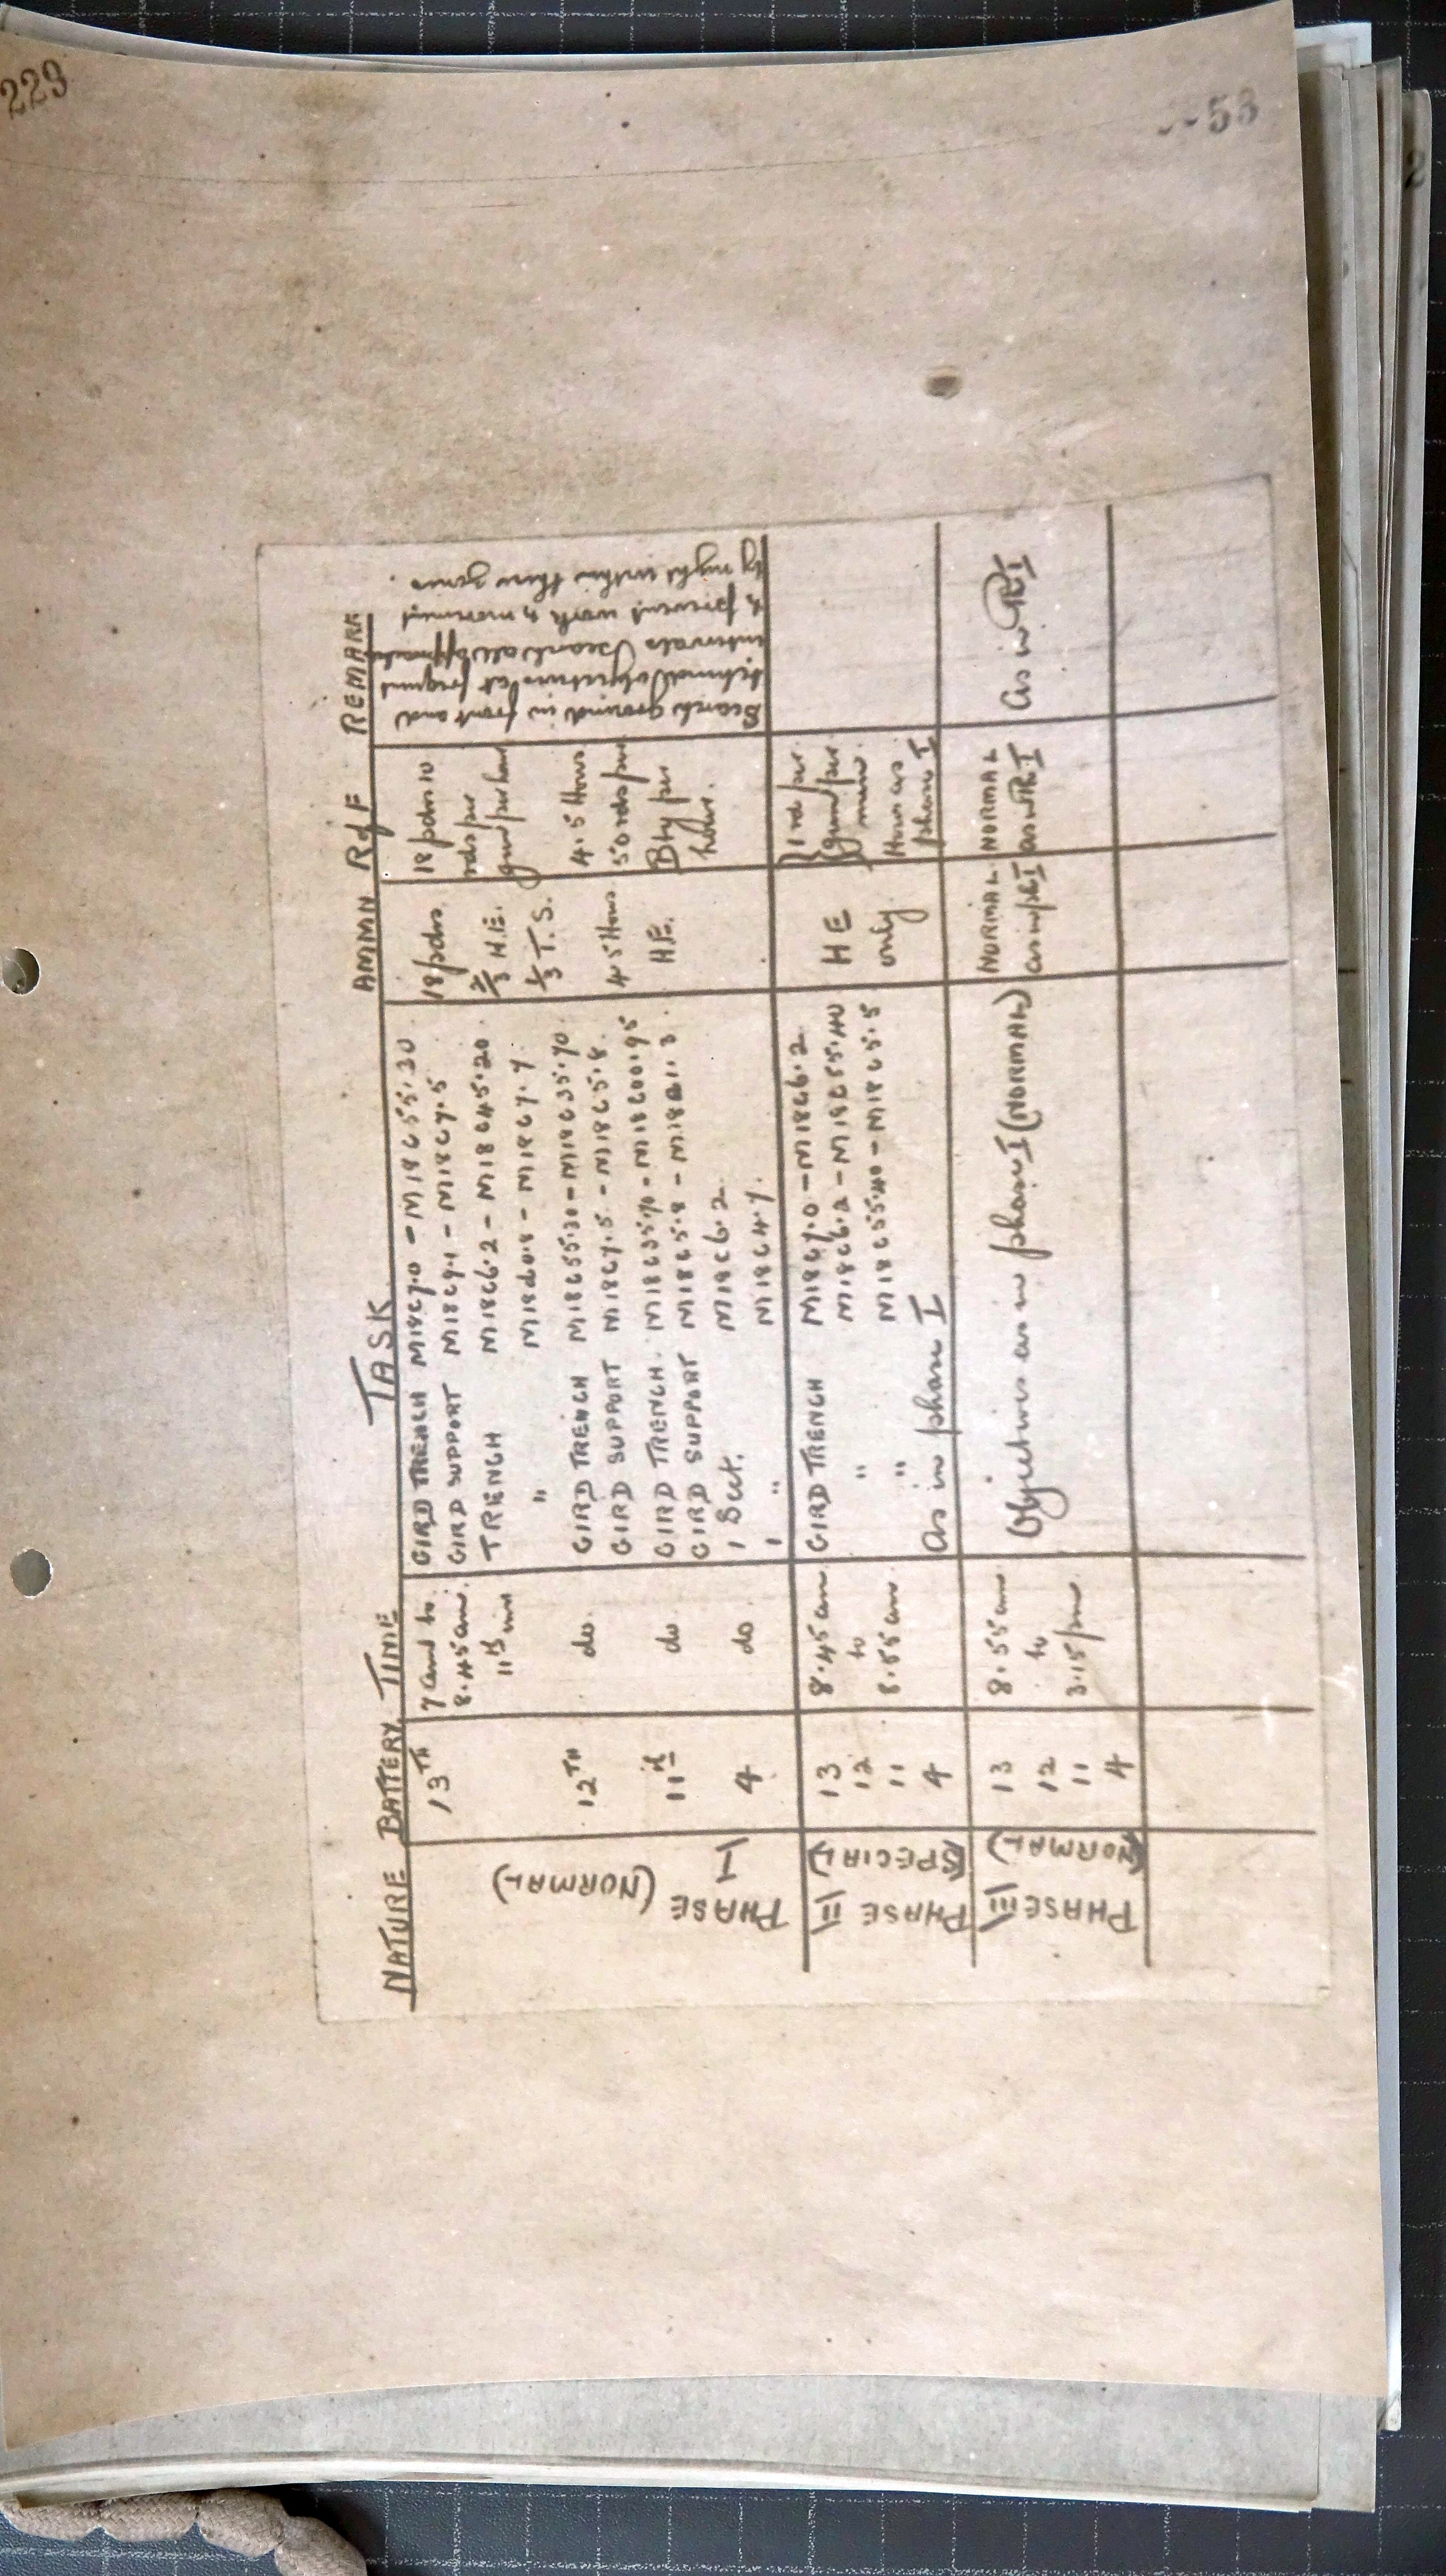 229
53
NATURE BATTERY TIME TASK AMMN R of F REMARK
PHASE I
(NORMAL)
13TH
7 am to
8.45 am
11th inst
GIRD TRENCH M18c7.0 - M18c55.30
GIRD SUPPORT M18c9.1 - M18c7.5
TRENCH M18c6.2 - M18c45.20
" M18d0.8 - M18c7.7
18 pdrs
2/3 H.E.
1/3 T.S.
4.5 Hows
H.E.
18 pdrs 10
rds per
gun per hour
4.5 Hows
50 rds per
Bty per
hour.
Search ground in front and
behind objectives at frequent
intervals Search all approaches
to prevent work & movement
by night within these zones.
12TH do
GIRD TRENCH M18c55.30 - M18c35.70
GIRD SUPPORT M18c7.5 - M18c5.8
11th do
GIRD TRENCH M18c35.70 - M18c00.95
GIRD SUPPORT M18c5.8 - M18a1.3
4 do
1 Sect. M18c6.2
1 " M18c4.7
PHASE II
(SPECIAL)
13
12
11
4
8.45 am
to
8.55 am
GIRD TRENCH M18c7.0 - M18c6.2
" M18c6.2 - M18c55.40
" M18c55.40 - M18c5.5
As in phase I
HE
only
1 rd per
gun per
min.
Hows as
phase I
PHASE III
(NORMAL)
13
12
11
4
8.55 am
to
3.15 pm
Objectives as in phase I (NORMAL)
NORMAL
as in ph I
NORMAL
as in Ph I
As in Ph I